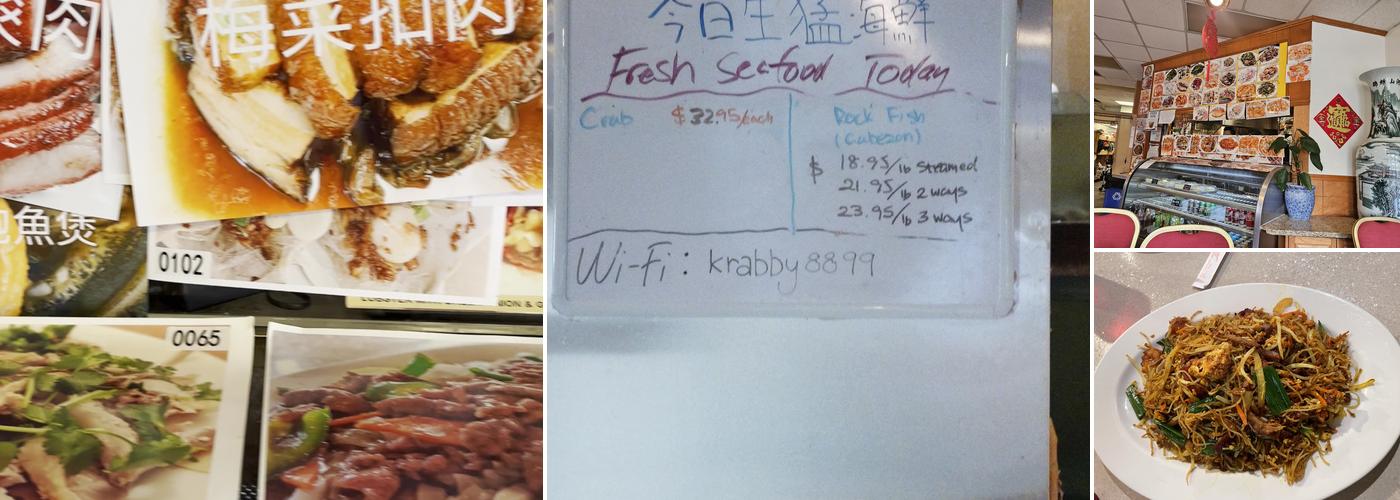 肉
梅菜扣肉
魚煲
0102
0065
今日生猛海鮮
Fresh Seafood Today
Crab $32.95/each
Rock Fish
(Cabezon)
$ 18.95/lb steamed
21.95/lb 2 ways
23.95/lb 3 ways
Wi-Fi: krabby8899